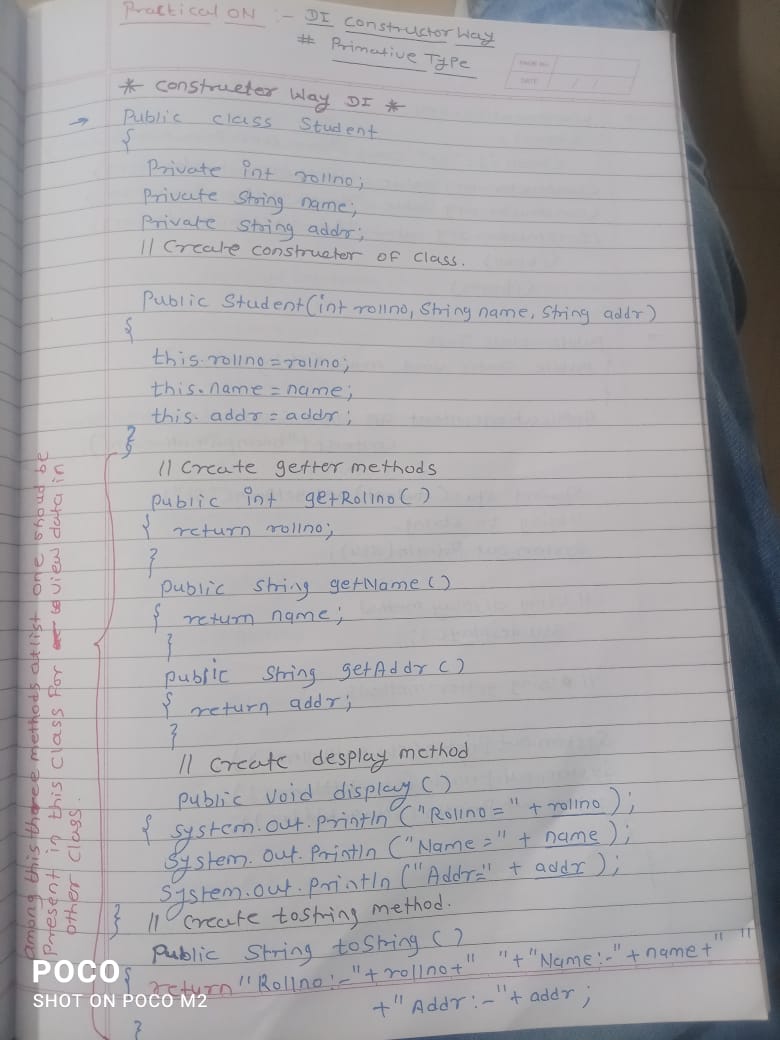 Practical ON :- DI Constructor Way
# Primative Type
PAGE NO.
DATE
* Constructer Way DI *
→ Public class Student
{
Private int rollno;
Private String name;
Private String addr;
// Create constructor of class.
Public Student(int rollno, String name, String addr)
{
this.rollno=rollno;
this.name = name;
this. addr = addr;
}
// Create getter methods
public int getRollno()
{ return rollno;
}
public String getName()
{ return name;
}
public String getAddr()
{ return addr;
}
// Create desplay method
public void display()
{ system.out.println ("Rollno=" + rollno);
System.out.println ("Name=" + name);
System.out.println ("Addr=" + addr);
} // Create tostring method.
Public String toString()
{ return "Rollno:-"+rollno+" "+"Name:-"+name+" "
+"Addr:-"+addr;
}
Among this tharee methods atlist one shoud be
Present in this class for to view data in
other class.
POCO
SHOT ON POCO M2